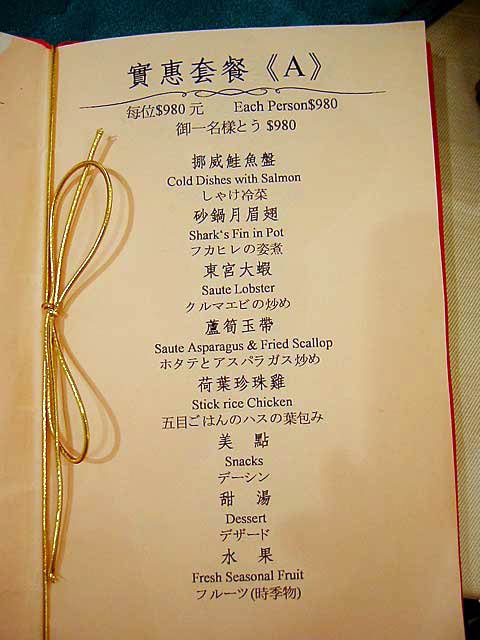 實惠套餐《A》
每位$980元 Each Person$980
御一名樣とう $980
挪威鮭魚盤
Cold Dishes with Salmon
しゃけ冷菜
砂鍋月眉翅
Shark's Fin in Pot
フカヒレの姿煮
東宮大蝦
Saute Lobster
クルマエビの炒め
蘆筍玉帶
Saute Asparagus & Fried Scallop
ホタテとアスパラガス炒め
荷葉珍珠雞
Stick rice Chicken
五目ごはんのハスの葉包み
美 點
Snacks
デーシン
甜 湯
Dessert
デザード
水 果
Fresh Seasonal Fruit
フルーツ(時季物)